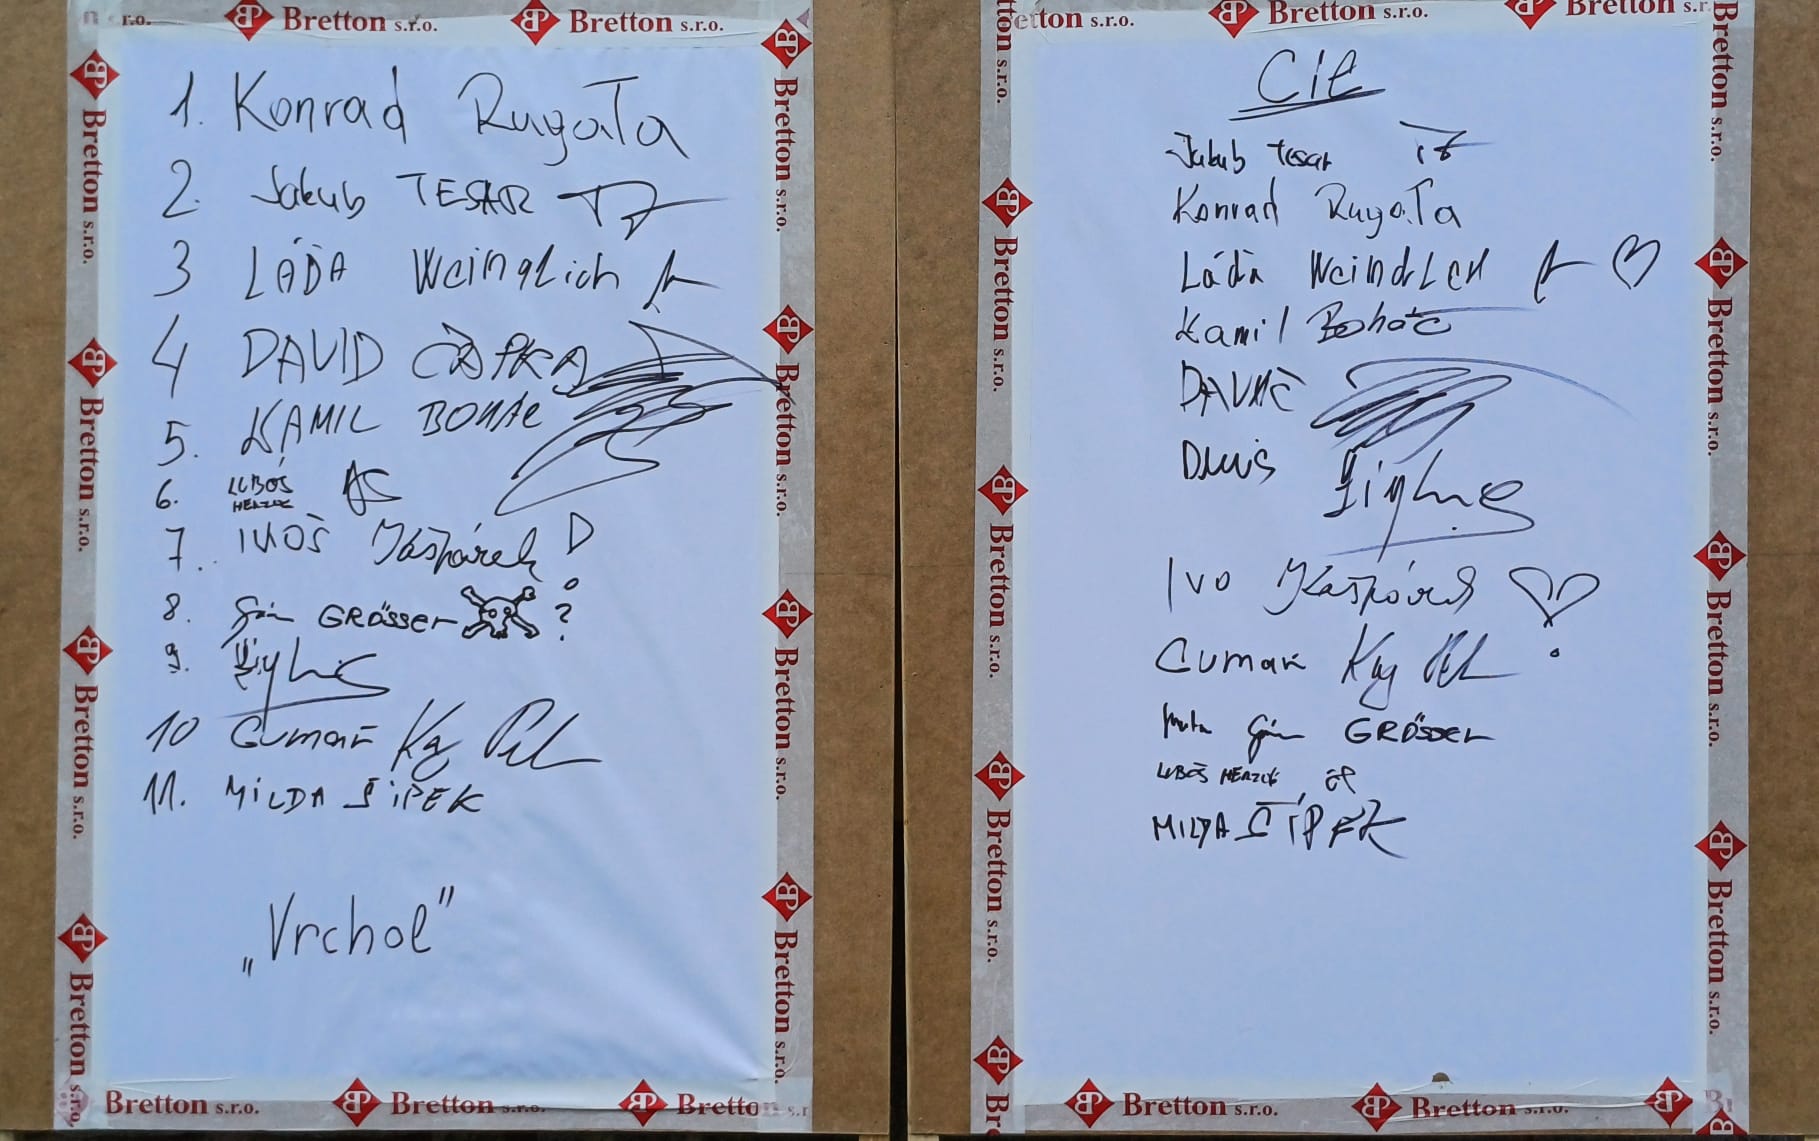 Bretton s.r.o.
Bretton s.r.o.
1. Konrad Rugała
2. Jakub TESAR
3 LÁĎA Weinglich
4 DAVID ČAPKA
5. KAMIL BOHÁČ
6. LUBOŠ HERZOG
7. IVOŠ Kašpárek
8. GRÖSSER ?
9.
10 Cumák
11. MILDA ŠÍPEK
„Vrchol"
Bretton s.r.o.
Bretton s.r.o.
Bretton
Bretton s.r.o.
Bretton s.r.o.
Cíl
Jakub Tesar
Konrad Rugała
Láďa
Kamil Boháč
Ivo Kašpárek
Cumák
GRÖSSER
LUBOŠ HERZOG
MILDA ŠÍPEK
Bretton s.r.o.
Bretton s.r.o.